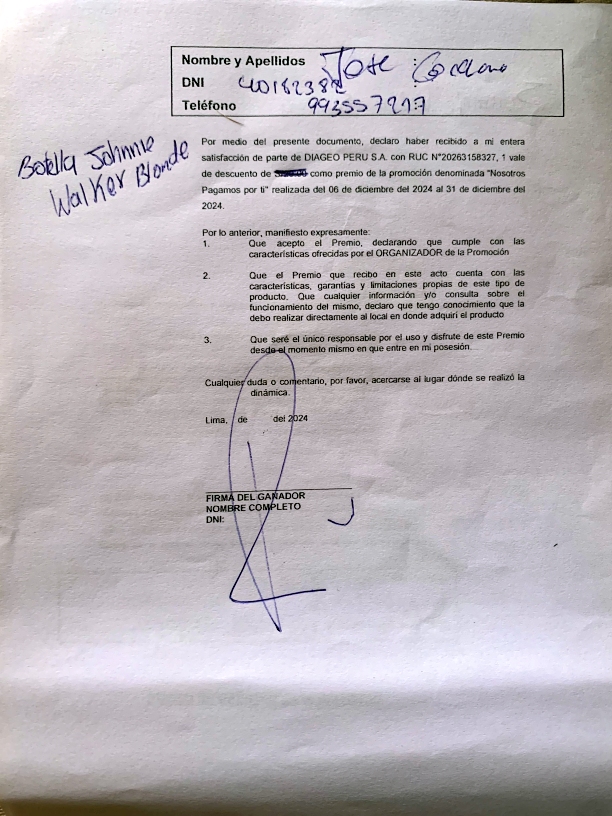 Nombre y Apellidos Jose
DNI 40182382
Teléfono 993557217
Botella Johnnie
Walker Blonde
Por medio del presente documento, declaro haber recibido a mi entera
satisfacción de parte de DIAGEO PERU S.A. con RUC N°20263158327, 1 vale
de descuento de como premio de la promoción denominada "Nosotros
Pagamos por ti" realizada del 06 de diciembre del 2024 al 31 de diciembre del
2024.
Por lo anterior, manifiesto expresamente:
1. Que acepto el Premio, declarando que cumple con las
características ofrecidas por el ORGANIZADOR de la Promoción
2. Que el Premio que recibo en este acto cuenta con las
características, garantías y limitaciones propias de este tipo de
producto. Que cualquier información y/o consulta sobre el
funcionamiento del mismo, declaro que tengo conocimiento que la
debo realizar directamente al local en donde adquirí el producto
3. Que seré el único responsable por el uso y disfrute de este Premio
desde el momento mismo en que entre en mi posesión.
Cualquier duda o comentario, por favor, acercarse al lugar dónde se realizó la
dinámica.
Lima, de del 2024
FIRMA DEL GANADOR
NOMBRE COMPLETO
DNI: